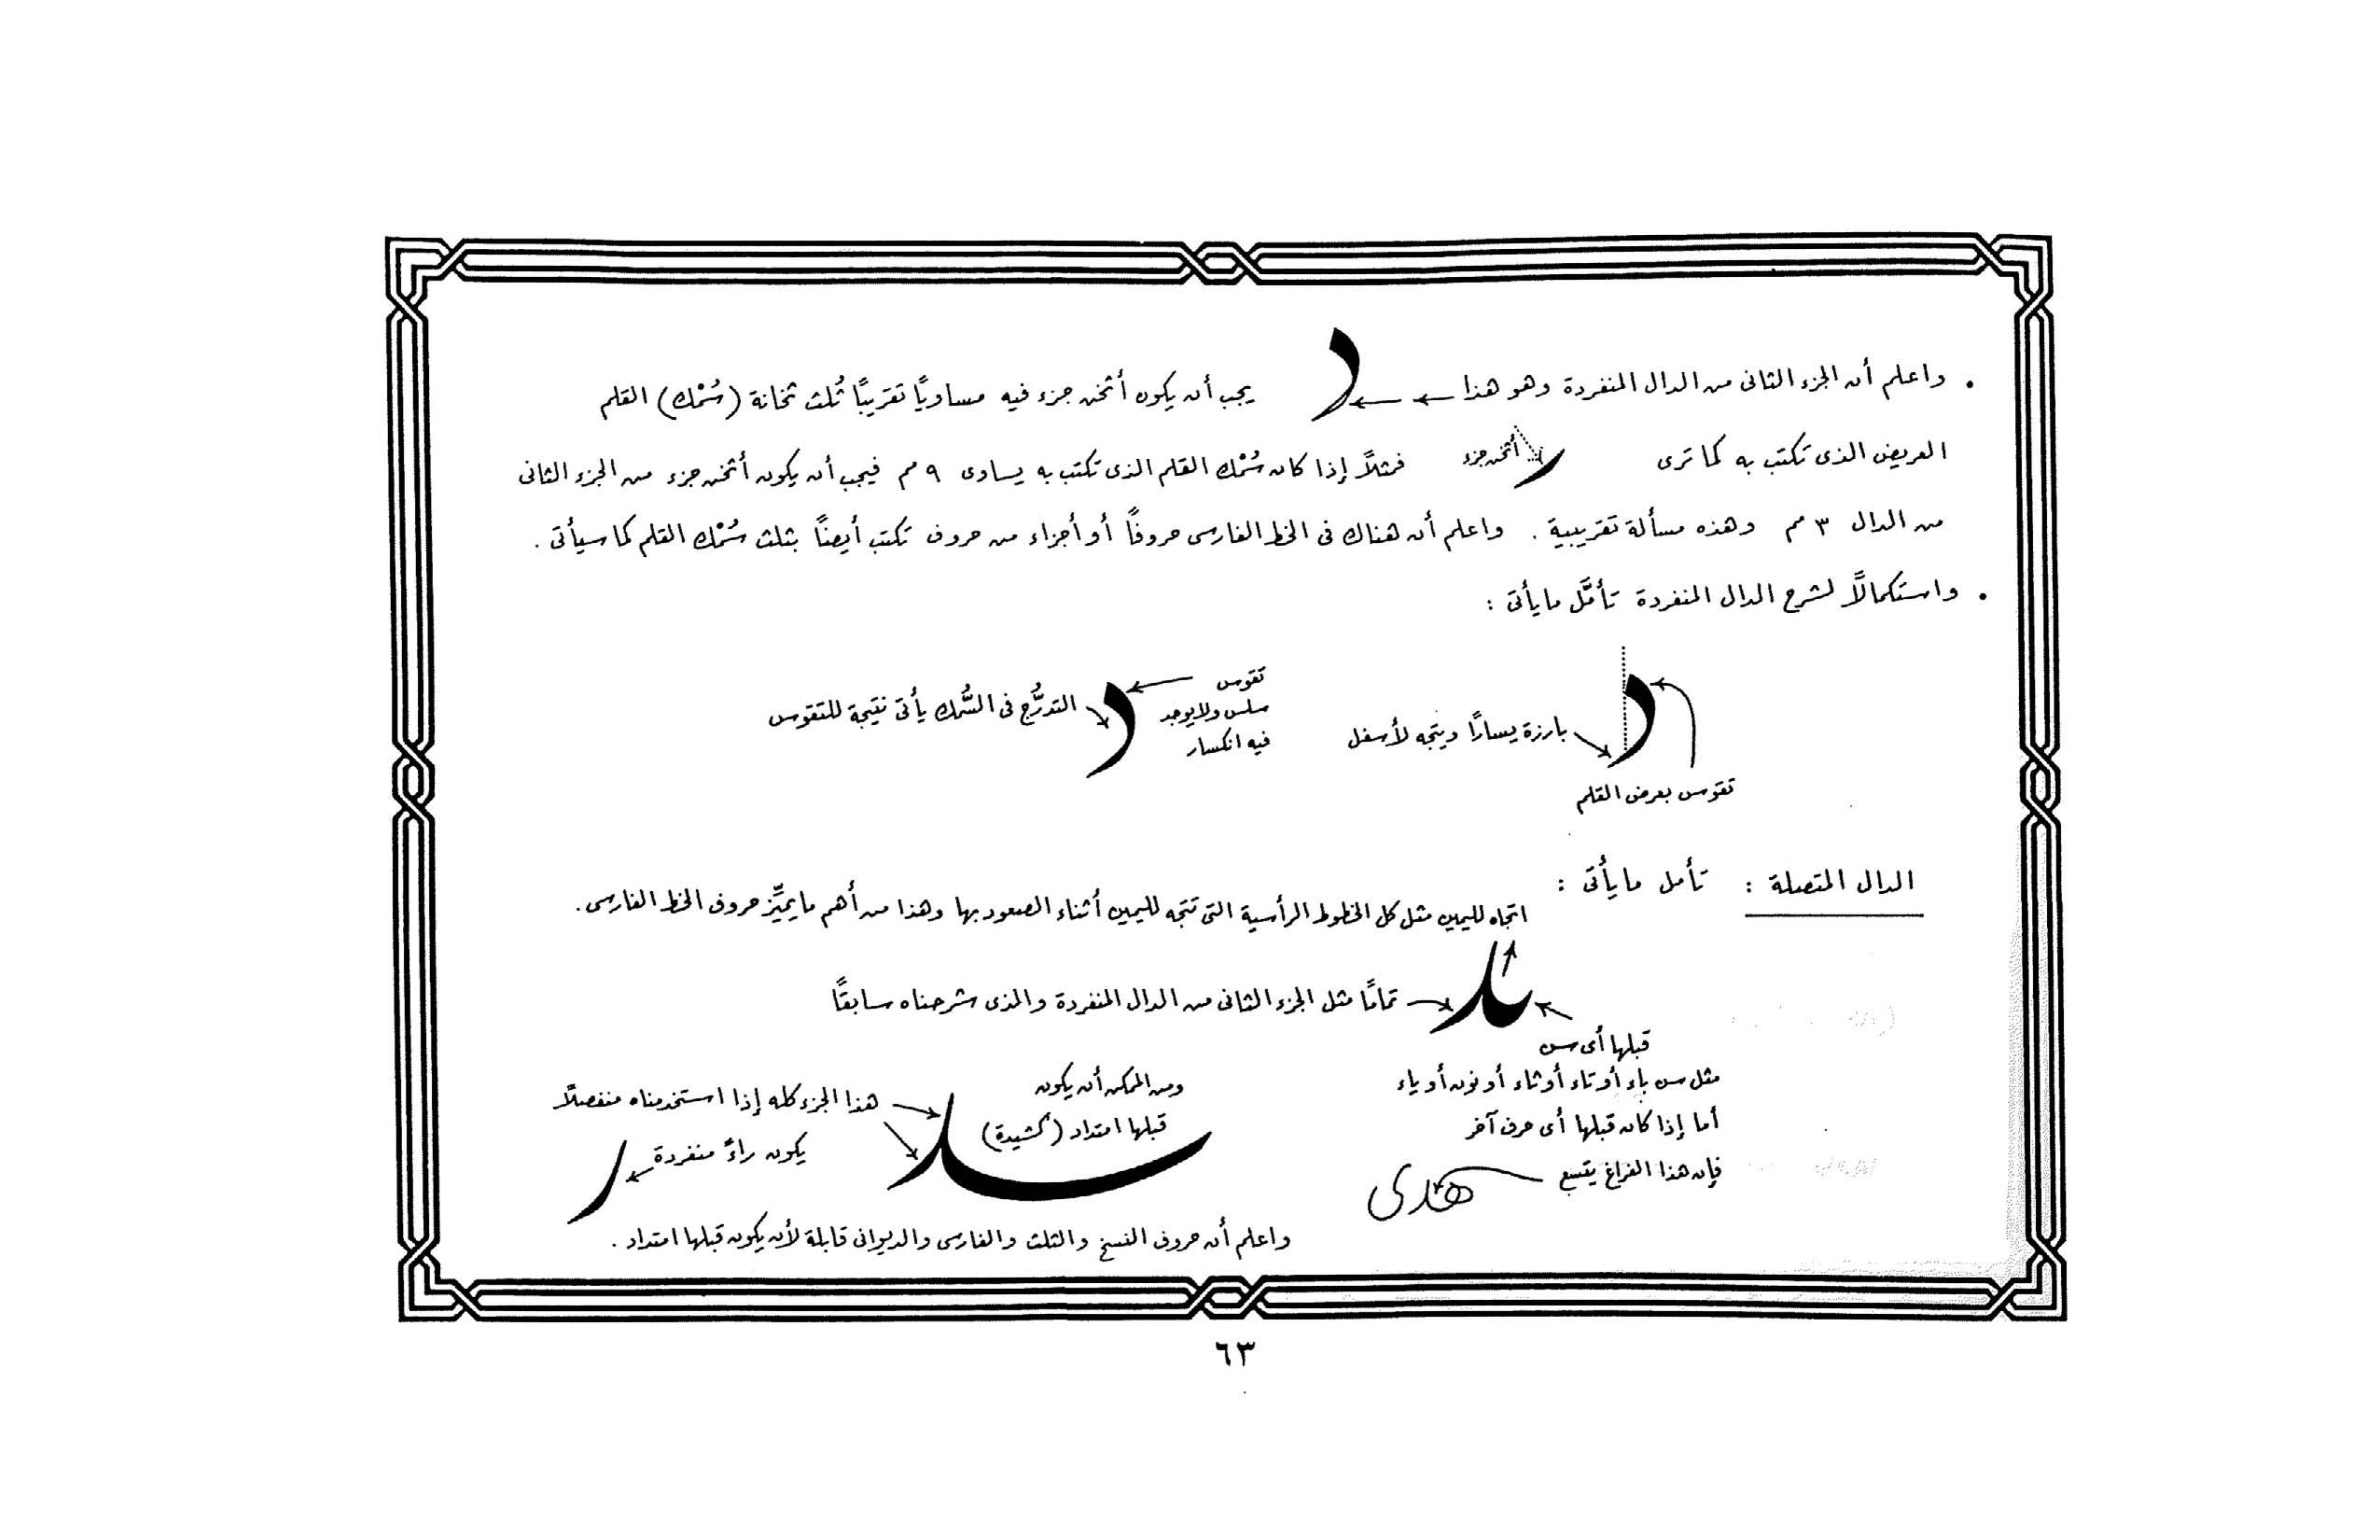 • واعلم أن الجزء الثانى من الدال المنفردة وهو هذا د يجب أن يكون أثخن جزء فيه مساويًا تقريبًا ثُلث ثخانة (سُمْك) القلم
العريض الذى تكتب به كما ترى أثخن جزء فمثلاً إذا كان سُمْك القلم الذى تكتب به يساوى ٩ مم فيجب أن يكون أثخن جزء من الجزء الثانى
من الدال ٣ مم وهذه مسألة تقريبية . واعلم أن هناك فى الخط الفارسى حروفًا أو أجزاء من حروف تكتب أيضًا بثلث سُمْك القلم كما سيأتى .
• واستكمالاً لشرح الدال المنفردة تأمَّل ما يأتى :
د
بارزة يسارًا ويتجه لأسفل
تقوس بعرض القلم
د
تقوس
سلس ولا يوجد
فيه انكسار
التدرُّج فى السُّمك يأتى نتيجة للتقوس
الدال المتصلة : تأمل ما يأتى :
اتجاه لليمين مثل كل الخطوط الرأسية التى تتجه لليمين أثناء الصعود بها وهذا من أهم ما يميِّز حروف الخط الفارسى .
تمامًا مثل الجزء الثانى من الدال المنفردة والذى شرحناه سابقًا
قبلها أى سن
مثل سن باء أو تاء أو ثاء أو نون أو ياء
أما إذا كان قبلها أى حرف آخر
فإن هذا الفراغ يتسع
هدى
ومن الممكن أن يكون
قبلها امتداد (كشيدة)
هذا الجزء كله إذا استخدمناه منفصلاً
يكون راءً منفردة
ر
واعلم أن حروف النسخ والثلث والفارسى والديوانى قابلة لأن يكون قبلها امتداد .
٦٣